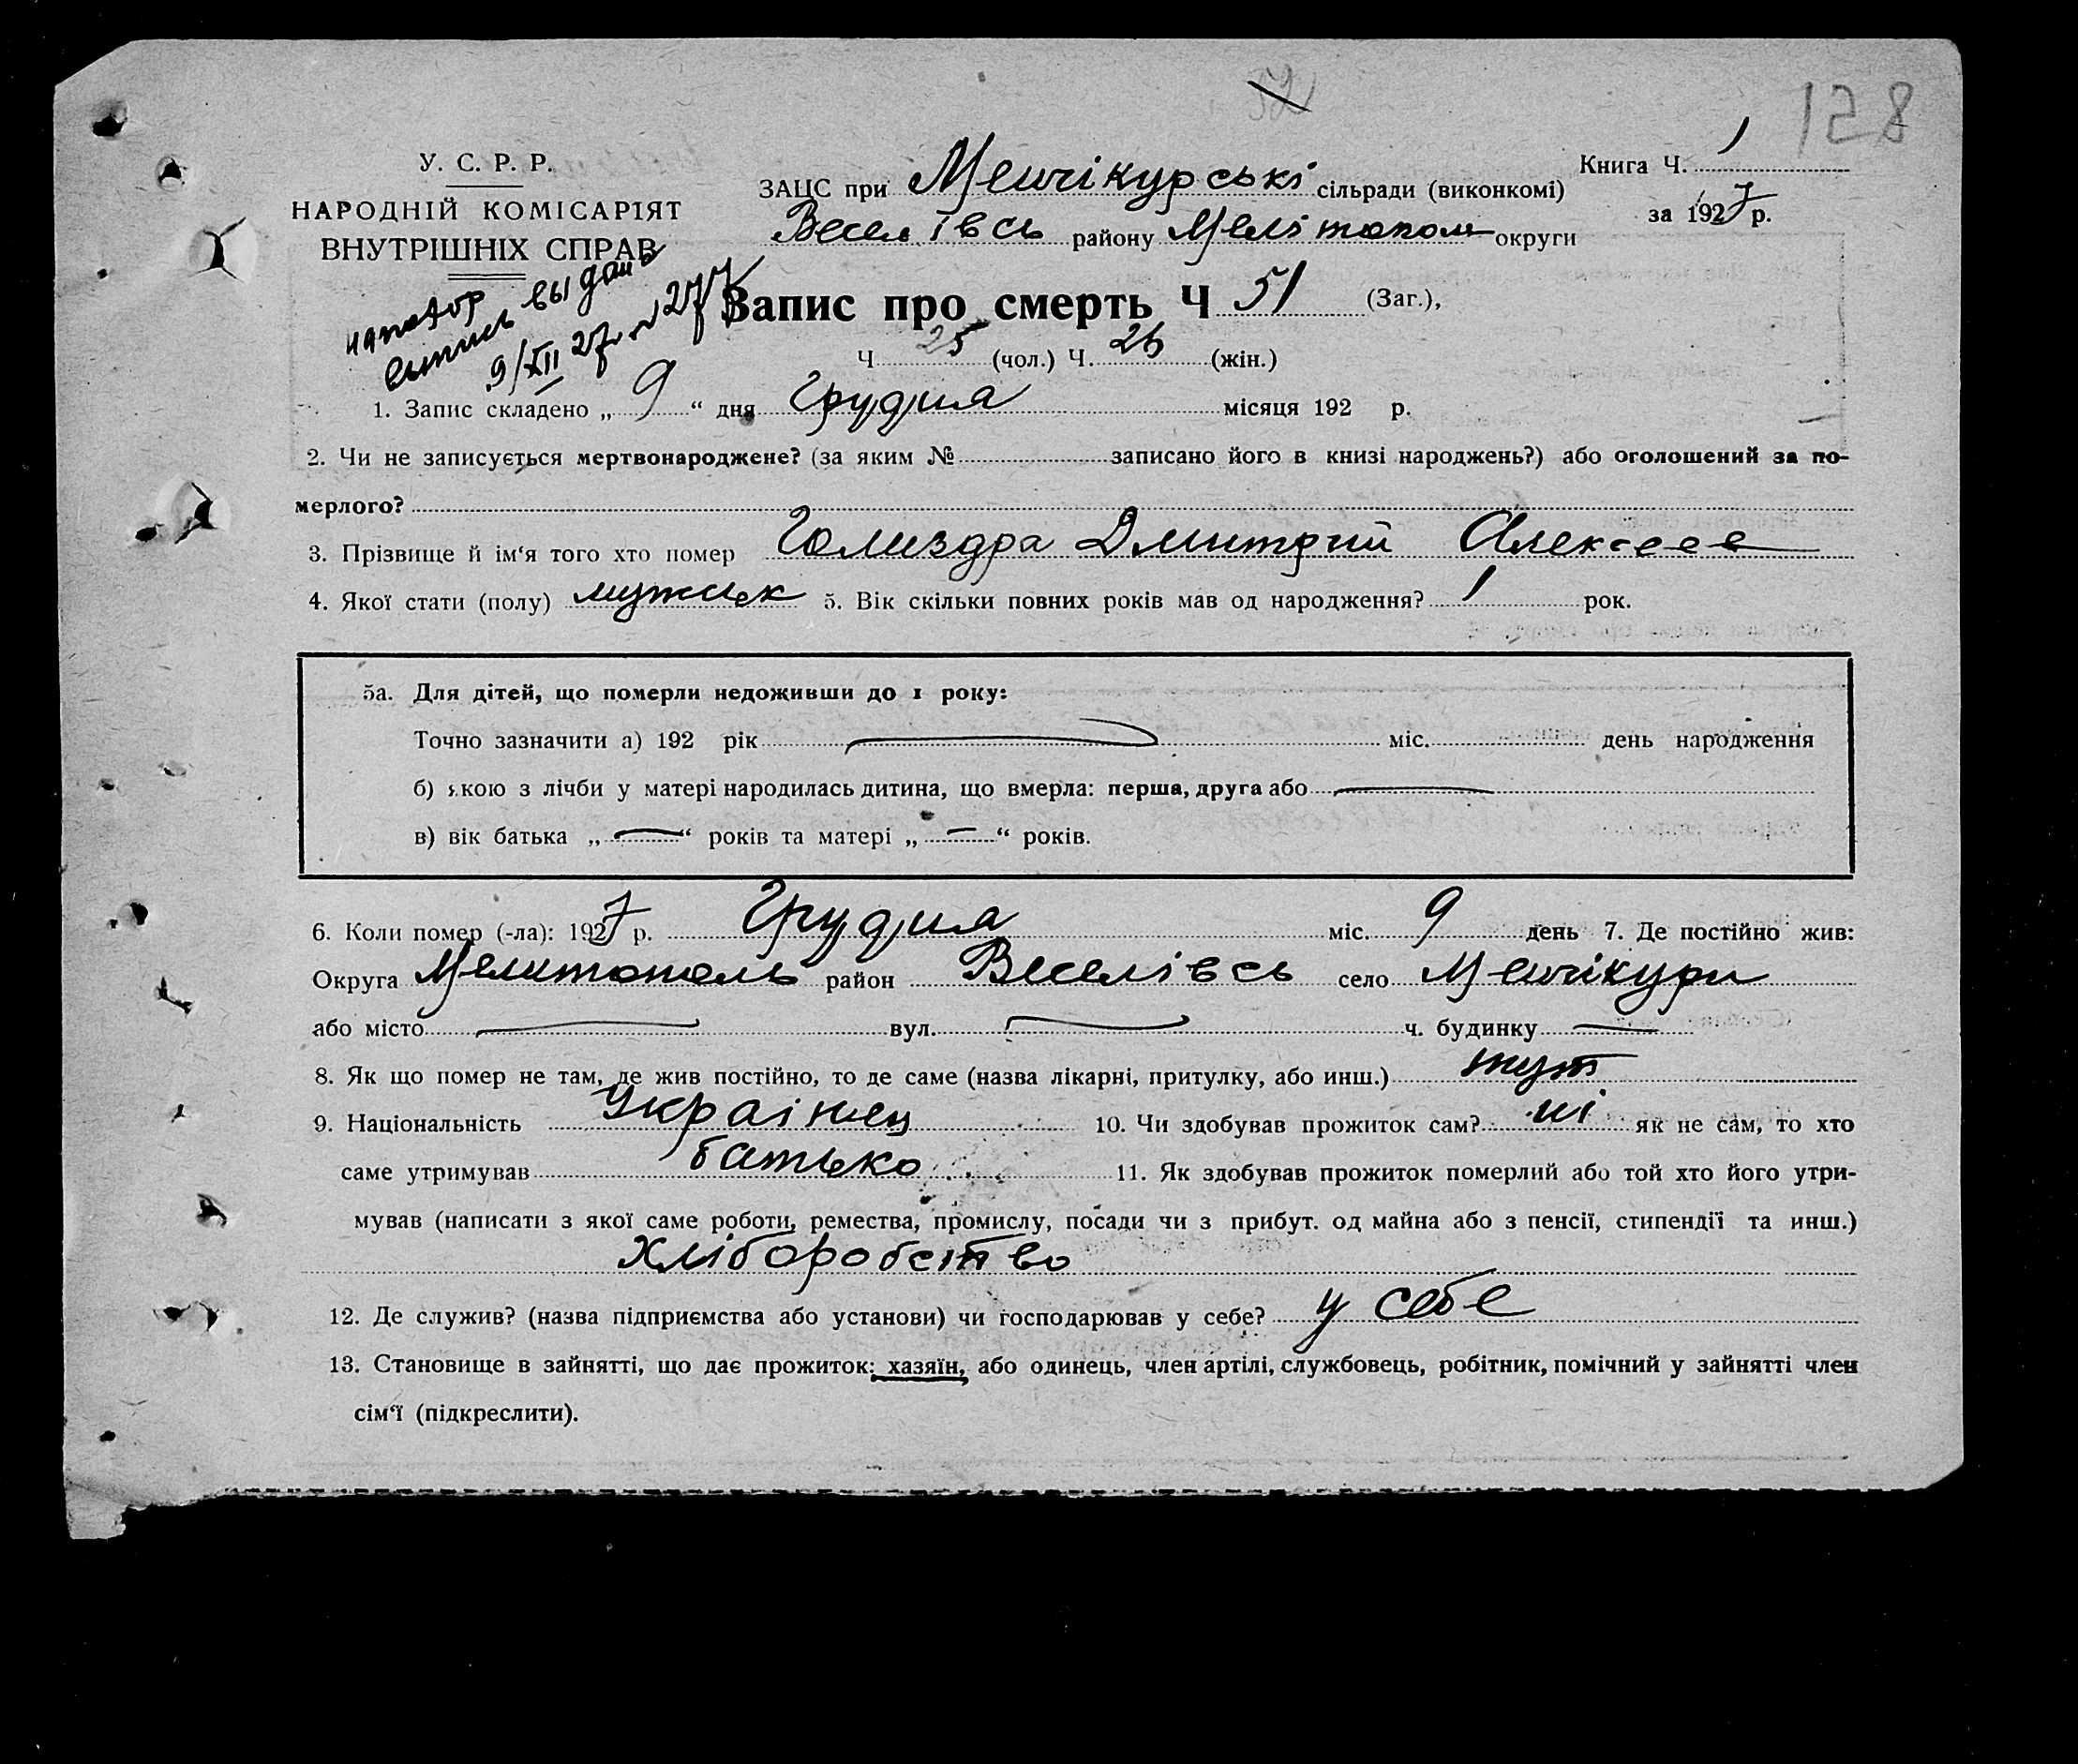 52
128
У. С. Р. Р.
НАРОДНІЙ КОМІСАРІЯТ
ВНУТРІШНІХ СПРАВ
ЗАЦС при Менчікурські сільради (виконкомі)
Книга Ч. 1
Веселівсь району Мелітополь округи
за 1927 р.
выдан
9/XII 27 г. № 277
Запис про смерть Ч 51 (Заг.),
Ч 25 (чол.) Ч. 26 (жін.)
1. Запис складено „ 9 “ дня Грудня місяця 192 р.
2. Чи не записується мертвонароджене? (за яким № записано його в книзі народжень?) або оголошений за по-
мерлого?
3. Прізвище й ім‘я того хто помер Голиздра Дмитрий Алексеев
4. Якої стати (полу) мужськ 5. Вік скільки повних років мав од народження? 1 рок.
5а. Для дітей, що померли недоживши до 1 року:
Точно зазначити а) 192 рік міс. день народження
б) якою з лічби у матері народилась дитина, що вмерла: перша, друга або
в) вік батька „ — “ років та матері „ — “ років.
6. Коли помер (-ла): 1927 р. Грудня міс. 9 день 7. Де постійно жив:
Округа Мелитополь район Веселівсь село Менчікури
або місто — вул. — ч. будинку —
8. Як що помер не там, де жив постійно, то де саме (назва лікарні, притулку, або инш.) тут
9. Національність Украінец 10. Чи здобував прожиток сам? ні як не сам, то хто
саме утримував батько 11. Як здобував прожиток померлий або той хто його утри-
мував (написати з якої саме роботи, ремества, промислу, посади чи з прибут. од майна або з пенсії, стипендії та инш.)
Хліборобство
12. Де служив? (назва підприємства або установи) чи господарював у себе? у себе
13. Становище в зайнятті, що дає прожиток: хазяїн, або одинець, член артілі, службовець, робітник, помічний у зайнятті член
сім‘ї (підкреслити).